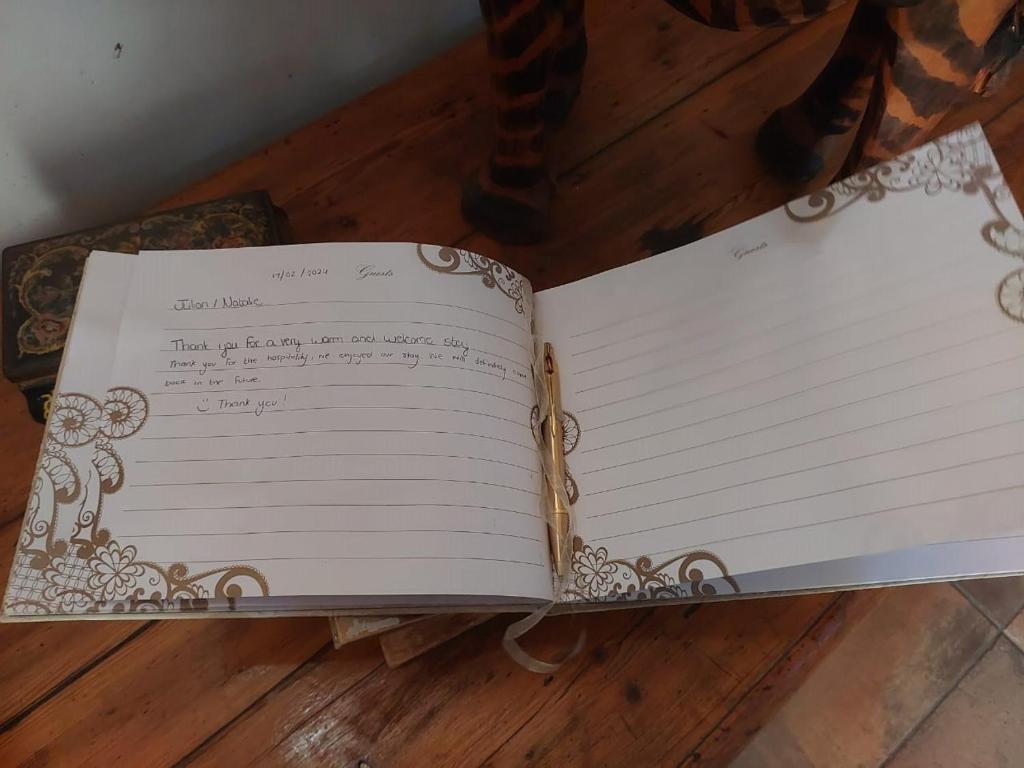 17/02/2024 Guests
Julian / Natalie
Thank you for a very warm and welcome stay
Thank you for the hospitality, we enjoyed our stay. We will definitely come
back in the future.
Thank you!
Guests